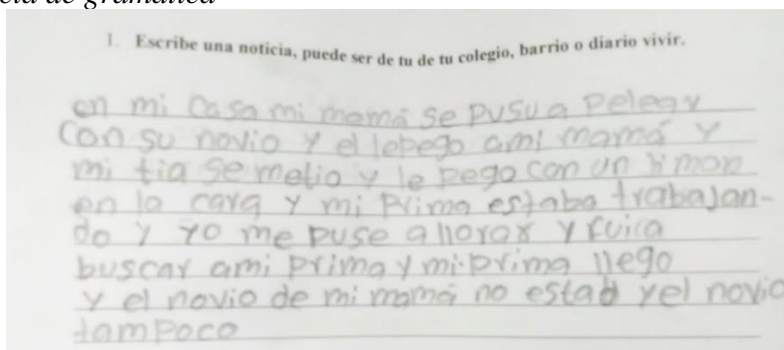 1. Escribe una noticia, puede ser de tu de tu colegio, barrio o diario vivir.
en mi casa mi mamá se pusu a peleay
con su novio y el lepego ami mamá y
mi tia se metio y le pego con un
en la cara y mi prima estaba trabajan-
do y yo me puse a llorar y fui a
buscar ami prima y mi prima llego
y el novio de mi mamá no estad y el novio
tampoco